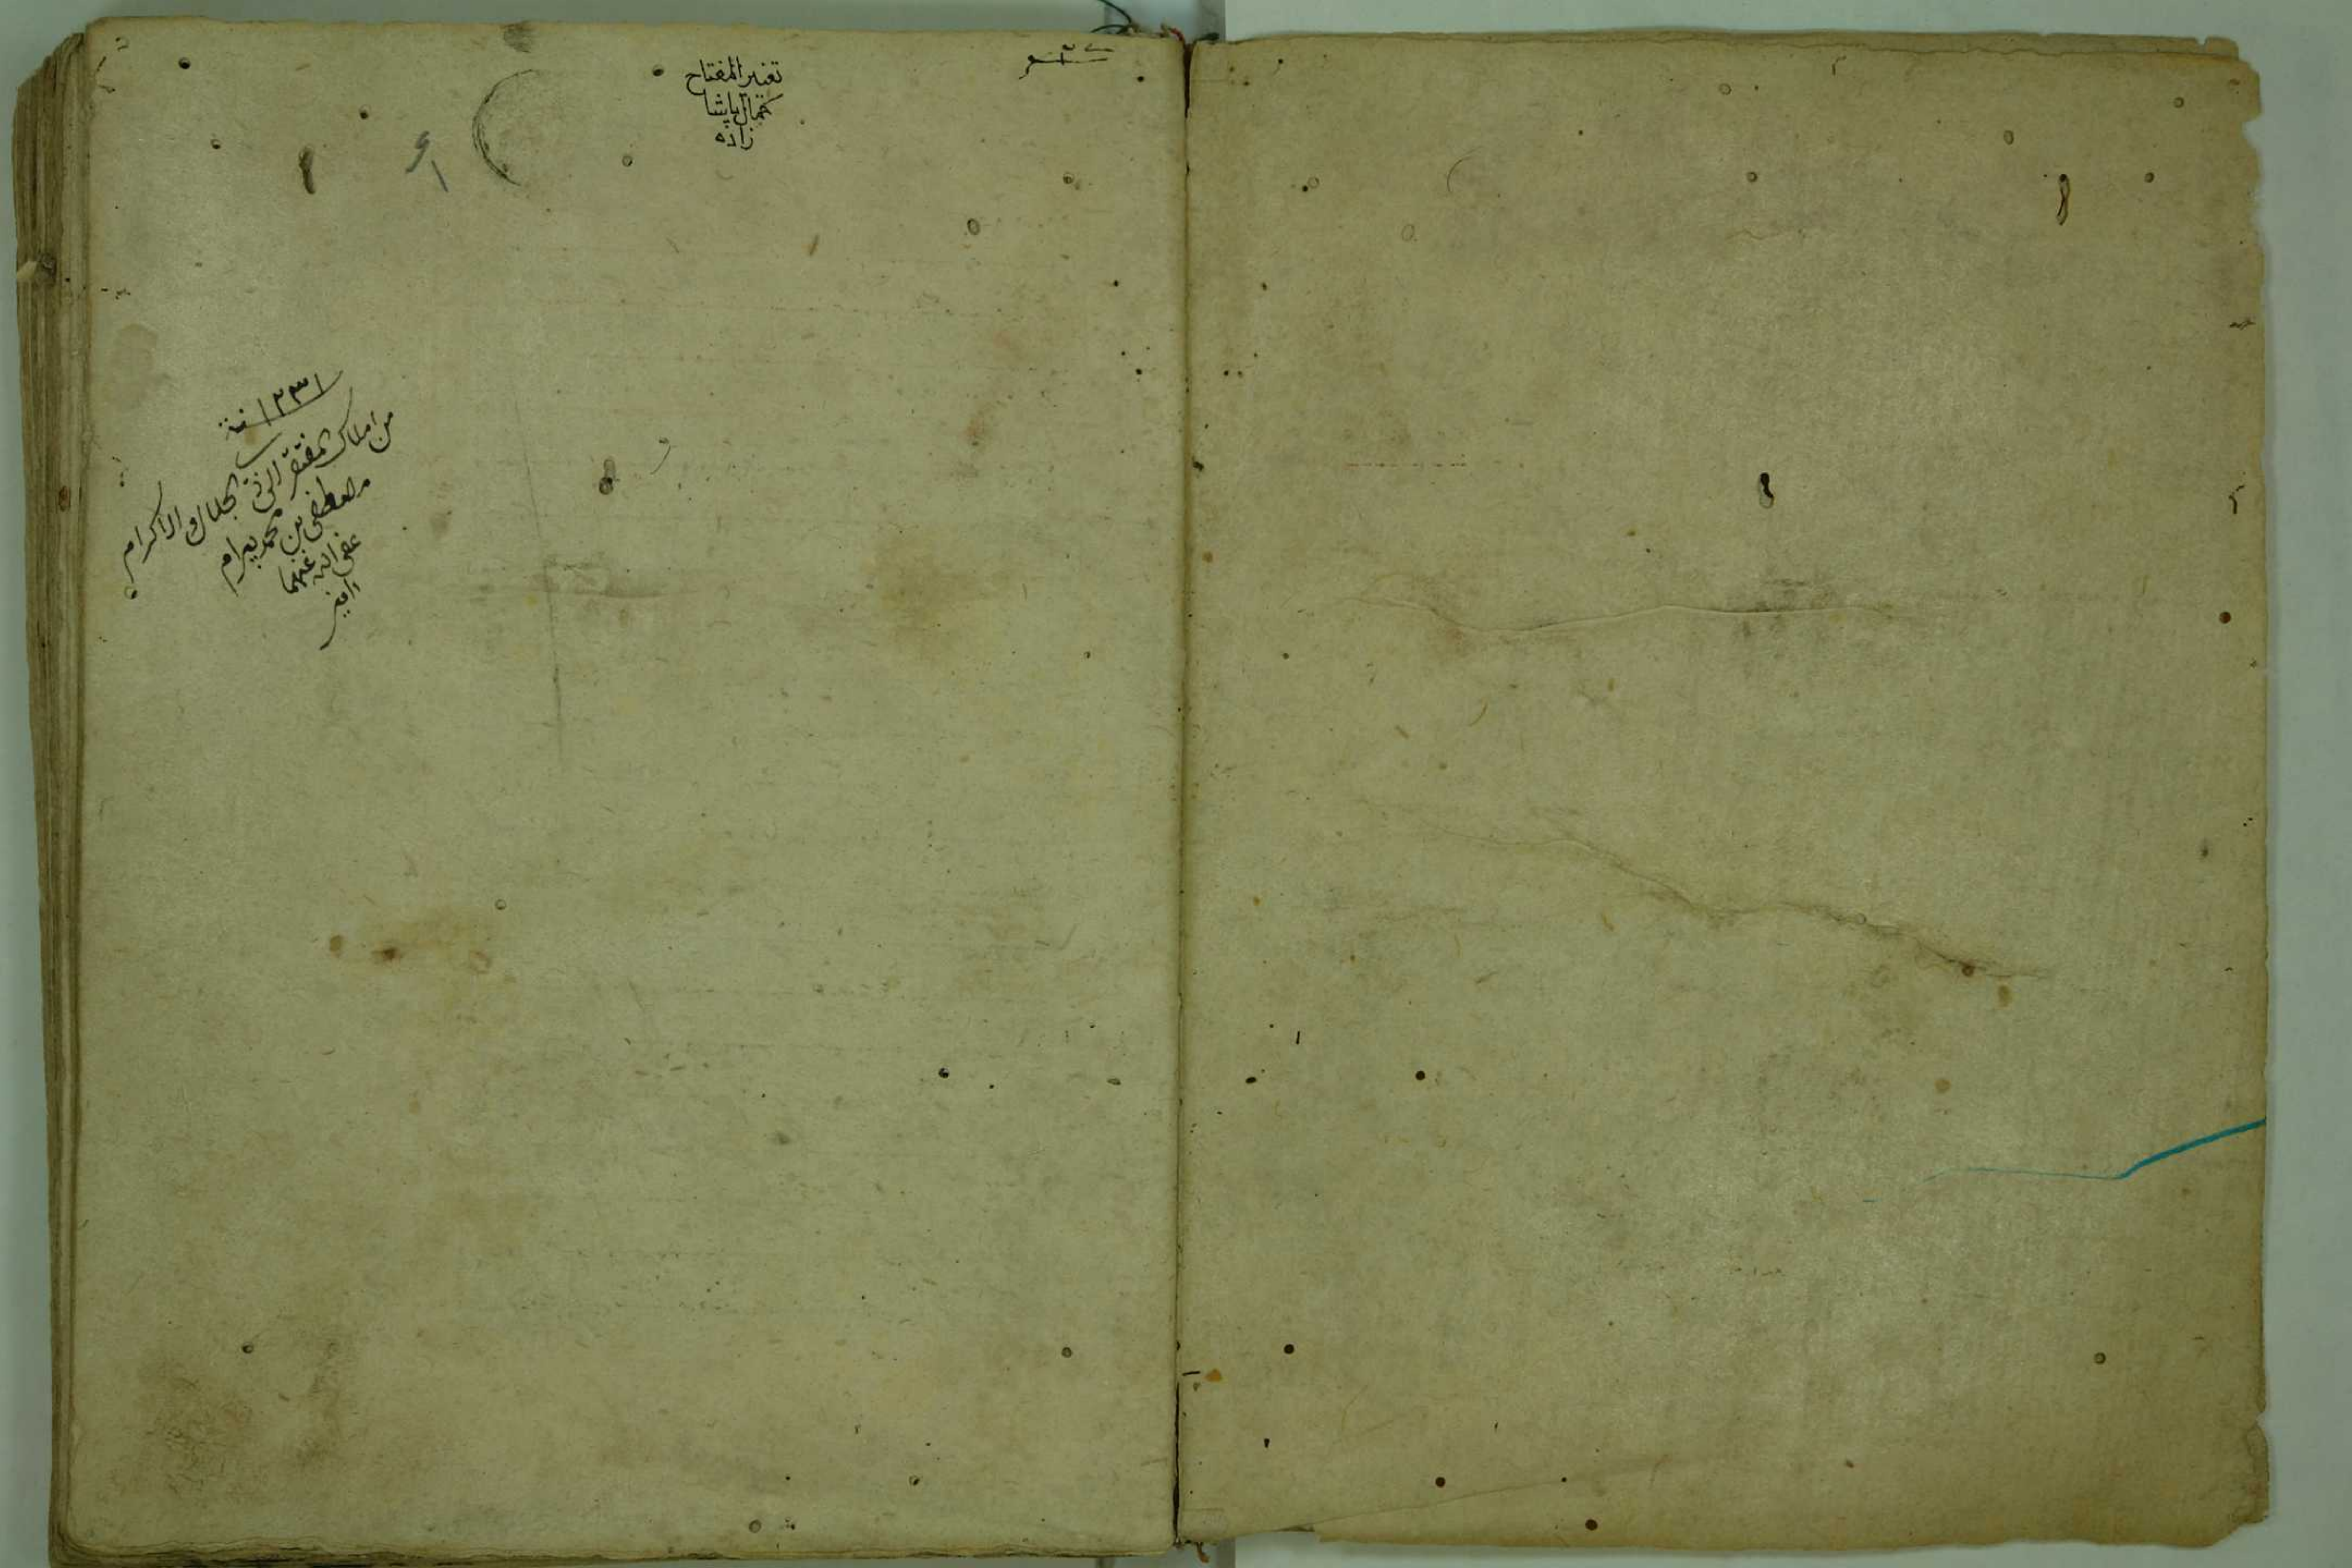 تغيير المفتاح
كمال پاشا
زاده
سنة ١٢٣١
من املاك المفتقر الى ذى الجلال والاكرام
مصطفى بن محمد بيرام
عفى الله عنهما
امين